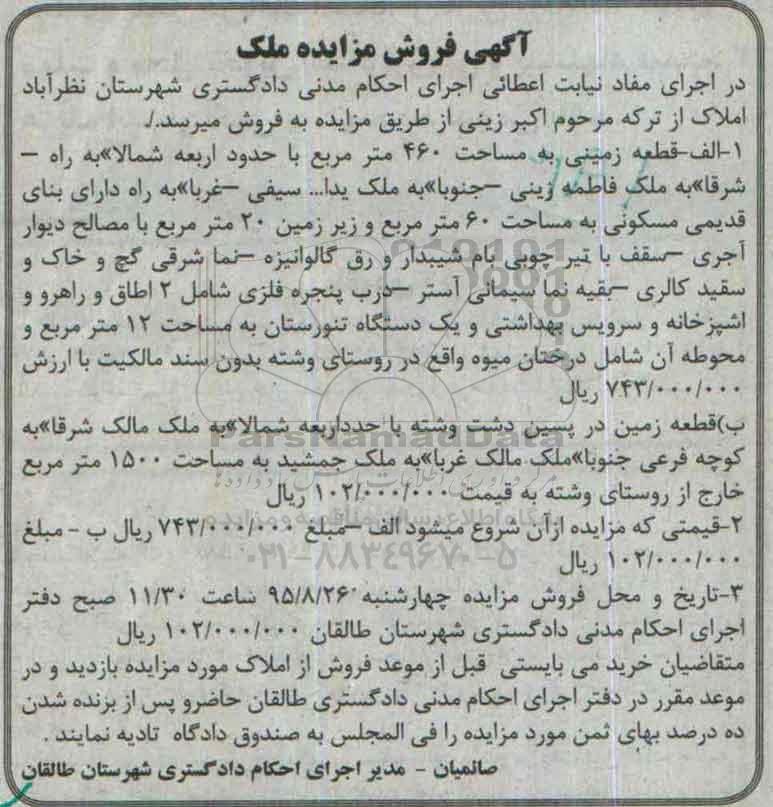 آگهی فروش مزایده ملک
در اجرای مفاد نیابت اعطائی اجرای احکام مدنی دادگستری شهرستان نظرآباد
املاک از ترکه مرحوم اکبر زینی از طریق مزایده به فروش میرسد./
۱-الف-قطعه زمینی به مساحت ۴۶۰ متر مربع با حدود اربعه شمالا»به راه –
شرقا»به ملک فاطمه زینی –جنوبا»به ملک یدا... سیفی –غربا»به راه دارای بنای
قدیمی مسکونی به مساحت ۶۰ متر مربع و زیر زمین ۲۰ متر مربع با مصالح دیوار
آجری –سقف با تیر چوبی بام شیبدار و رق گالوانیزه –نما شرقی گچ و خاک و
سفید کالری –بقیه نما سیمانی آستر –درب پنجره فلزی شامل ۲ اطاق و راهرو و
اشپزخانه و سرویس بهداشتی و یک دستگاه تنورستان به مساحت ۱۲ متر مربع و
محوطه آن شامل درختان میوه واقع در روستای وشته بدون سند مالکیت با ارزش
۷۴۳/۰۰۰/۰۰۰ ریال
ب)قطعه زمین در پسین دشت وشته با حدداربعه شمالا»به ملک مالک شرقا»به
کوچه فرعی جنوبا»ملک مالک غربا»به ملک جمشید به مساحت ۱۵۰۰ متر مربع
خارج از روستای وشته به قیمت ۱۰۲/۰۰۰/۰۰۰ ریال
۲-قیمتی که مزایده ازان شروع میشود الف –مبلغ ۷۴۳/۰۰۰/۰۰۰ ریال ب – مبلغ
۱۰۲/۰۰۰/۰۰۰ ریال
۳-تاریخ و محل فروش مزایده چهارشنبه ۹۵/۸/۲۶ ساعت ۱۱/۳۰ صبح دفتر
اجرای احکام مدنی دادگستری شهرستان طالقان ۱۰۲/۰۰۰/۰۰۰ ریال
متقاضیان خرید می بایستی قبل از موعد فروش از املاک مورد مزایده بازدید و در
موعد مقرر در دفتر اجرای احکام مدنی دادگستری طالقان حاضرو پس از برنده شدن
ده درصد بهای ثمن مورد مزایده را فی المجلس به صندوق دادگاه تادیه نمایند .
صالمیان – مدیر اجرای احکام دادگستری شهرستان طالقان
ParsNamadData
۰۲۱-۸۸۳۴۹۶۷۰-۵